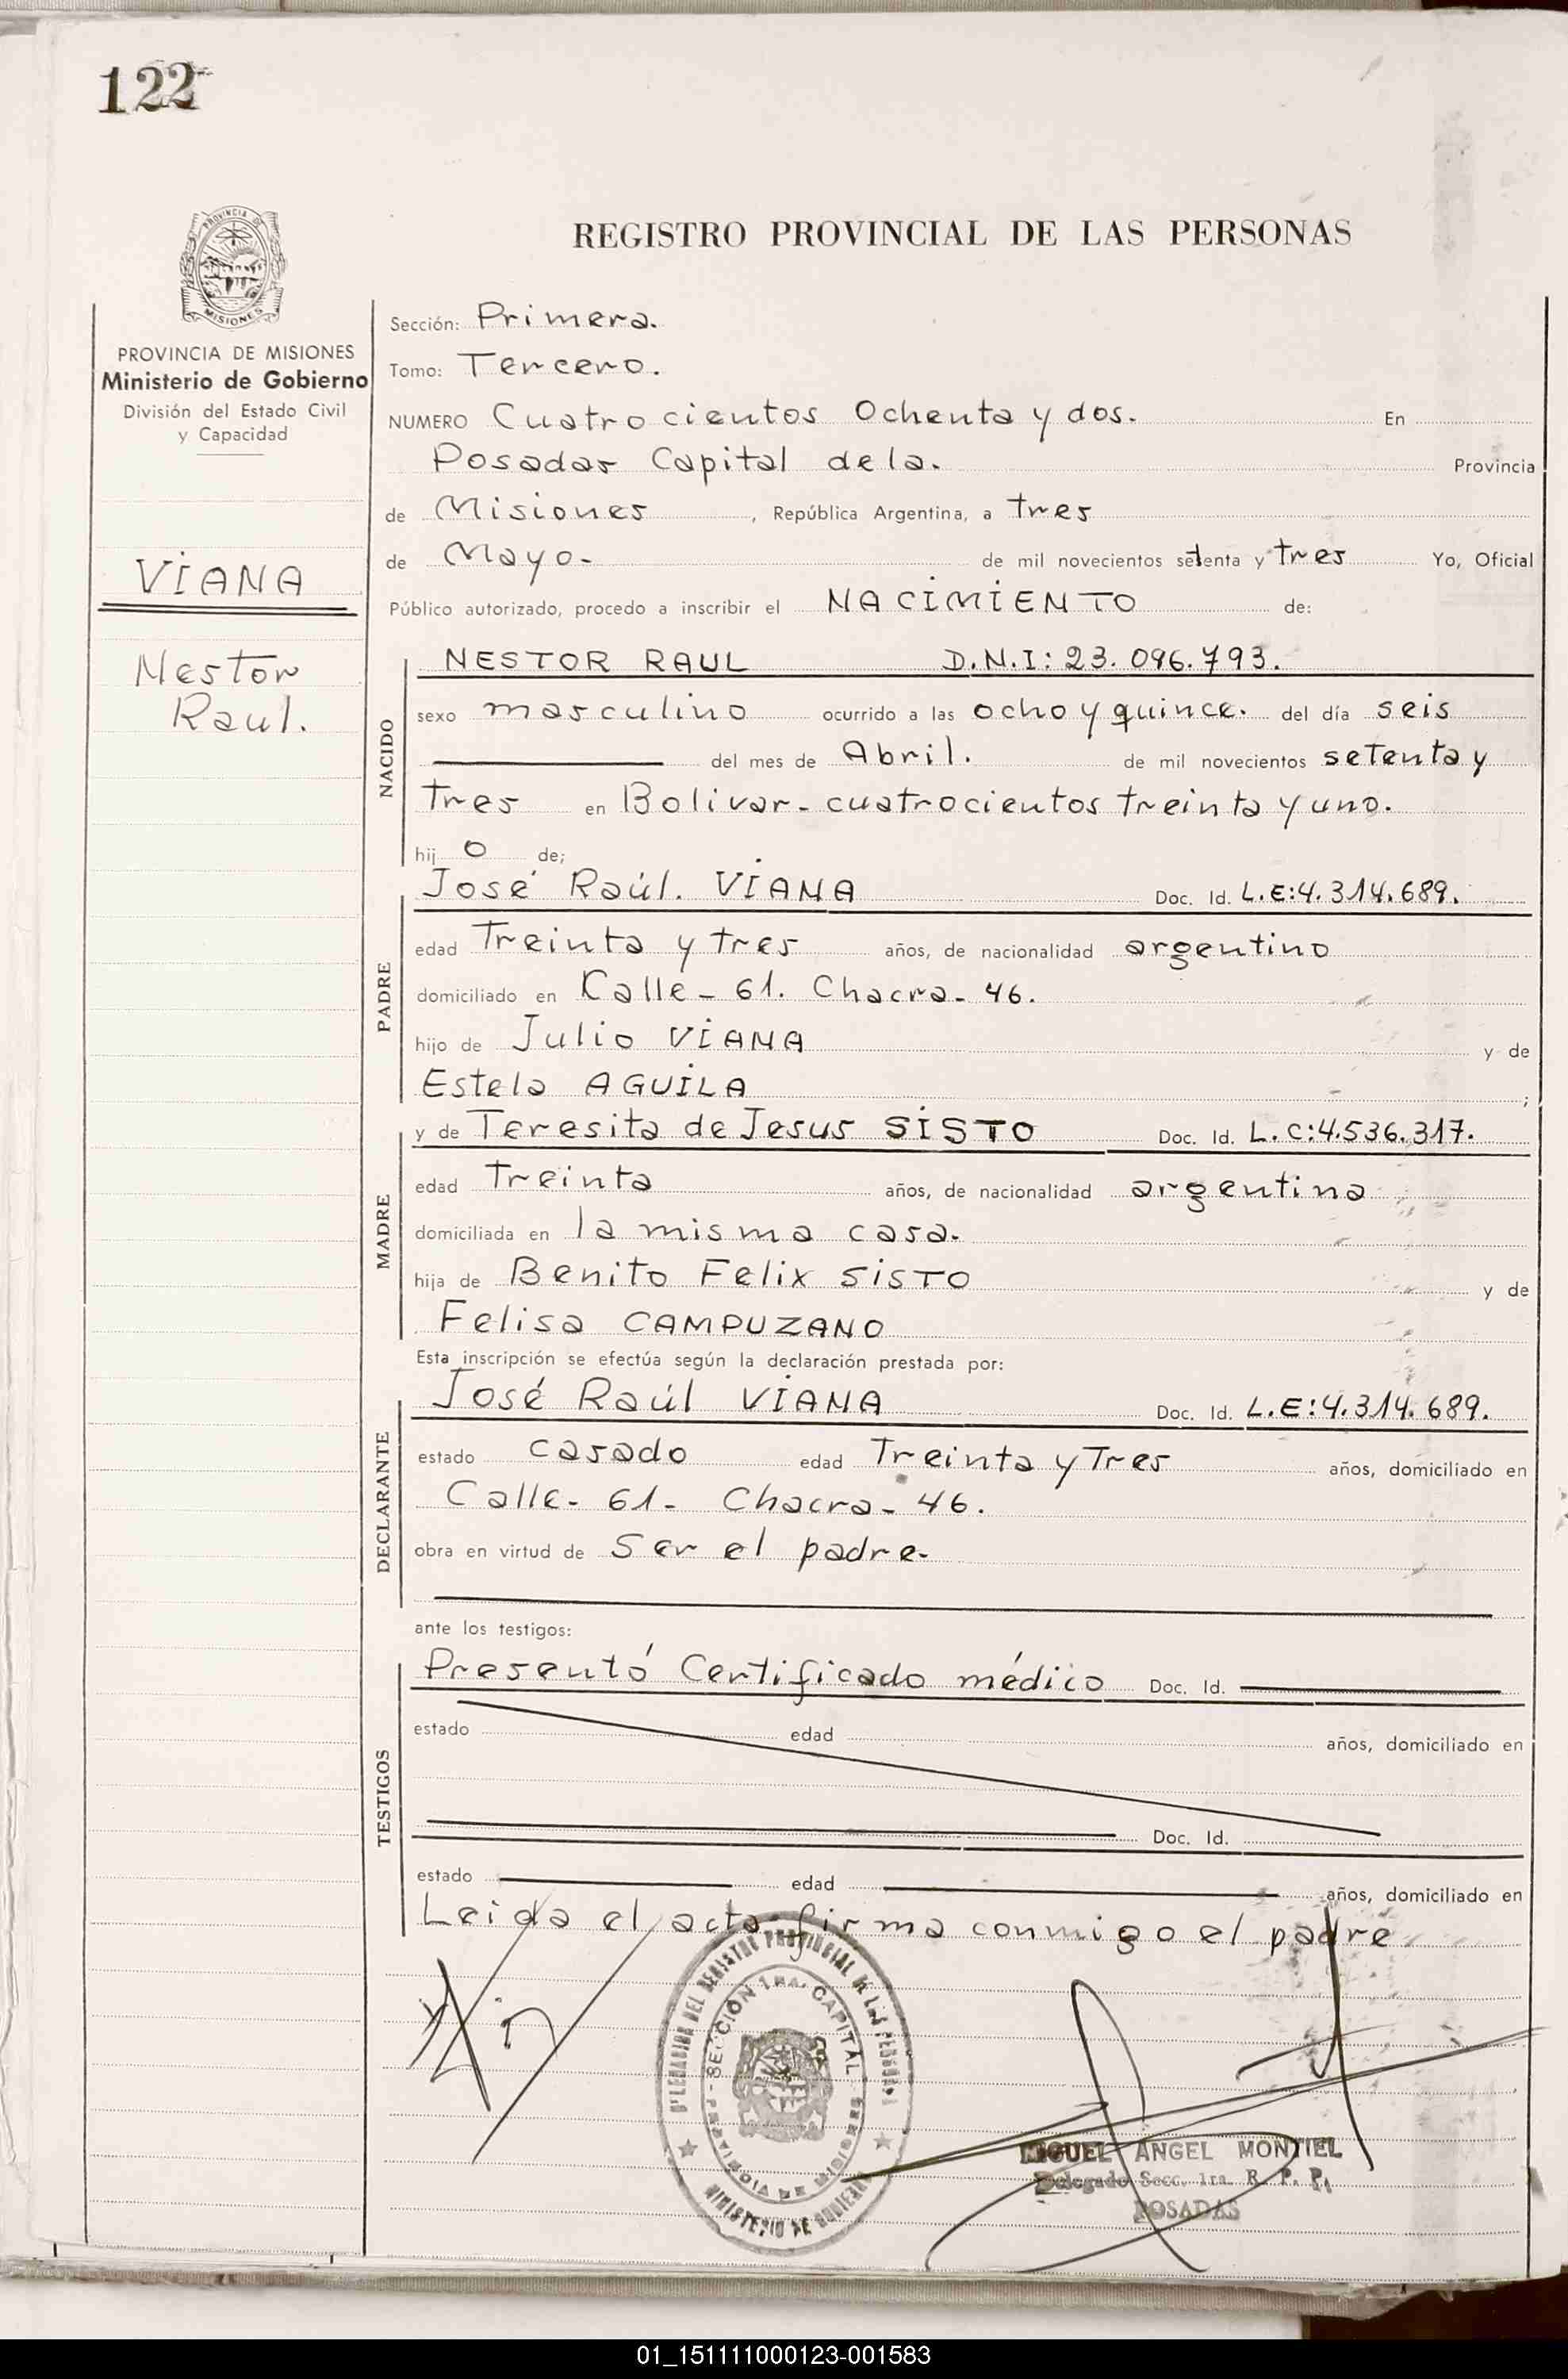 122
PROVINCIA DE
MISIONES
PROVINCIA DE MISIONES
Ministerio de Gobierno
División del Estado Civil
y Capacidad
VIANA
Nestor
Raul.
REGISTRO PROVINCIAL DE LAS PERSONAS
Sección: Primera.
Tomo: Tercero.
NUMERO Cuatrocientos Ochenta y dos. En
Posadas Capital de la. Provincia
de Misiones, República Argentina, a tres
de Mayo- de mil novecientos setenta y tres Yo, Oficial
Público autorizado, procedo a inscribir el NACIMIENTO de:
NACIDO
NESTOR RAUL D.N.I: 23.096.793.
sexo masculino ocurrido a las ocho y quince. del día seis
del mes de Abril. de mil novecientos setenta y
tres en Bolivar- cuatrocientos treinta y uno.
hij o de;
PADRE
José Raúl. VIANA Doc. Id. L.E:4.314.689.
edad Treinta y tres años, de nacionalidad argentino
domiciliado en Calle- 61. Chacra- 46.
hijo de Julio VIANA y de
Estela AGUILA ;
MADRE
y de Teresita de Jesus SISTO Doc. Id. L.C:4.536.317.
edad Treinta años, de nacionalidad argentina
domiciliada en la misma casa.
hija de Benito Felix SISTO y de
Felisa CAMPUZANO
Esta inscripción se efectúa según la declaración prestada por:
DECLARANTE
José Raúl VIANA Doc. Id. L.E:4.314.689.
estado casado edad Treinta y Tres años, domiciliado en
Calle- 61- Chacra- 46.
obra en virtud de Ser el padre-
ante los testigos:
TESTIGOS
Presentó Certificado médico Doc. Id.
estado edad años, domiciliado en
Doc. Id.
estado edad años, domiciliado en
Leida el acta firma conmigo el padre
DELEGACION DEL REGISTRO PROVINCIAL DE LAS PERSONAS
SECCIÓN 1RA. CAPITAL
PROVINCIA DE MISIONES
MINISTERIO DE GOBIERNO
MIGUEL ANGEL MONTIEL
Delegado Secc. 1ra. R. P. P.
POSADAS
01_151111000123-001583